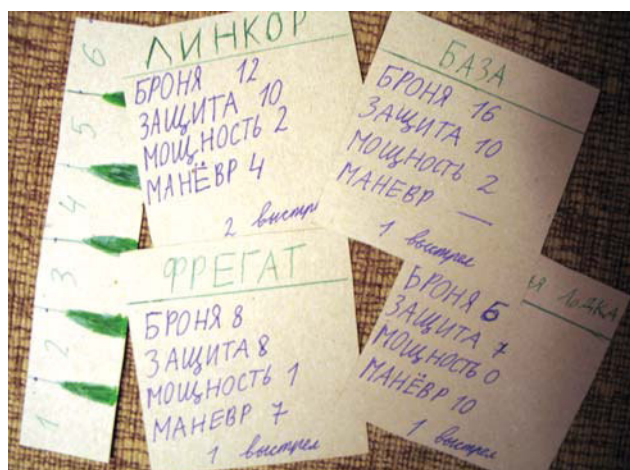 6
5
4
3
2
1
ЛИНКОР
БРОНЯ 12
ЗАЩИТА 10
МОЩНОСТЬ 2
МАНЁВР 4
2 выстре
БАЗА
БРОНЯ 16
ЗАЩИТА 10
МОЩНОСТЬ 2
МАНЕВР —
1 выстрел
ФРЕГАТ
БРОНЯ 8
ЗАЩИТА 8
МОЩНОСТЬ 1
МАНЕВР 7
1 выстрел
АЯ ЛОДКА
БРОНЯ 6
ЗАЩИТА 7
МОЩНОСТЬ 0
МАНЁВР 10
1 выстрел